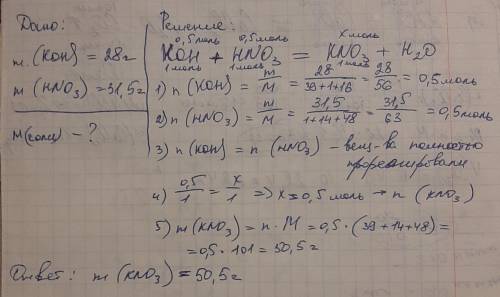 Дано:
m (KOH) = 28г
m (HNO₃) = 31,5г
M(соли) - ?
Решение:
0,5 моль 0,5 моль x моль
KOH + HNO₃ = KNO₃ + H₂O
1 моль 1 моль 1 моль
1) n (KOH) = m/M = 28/(39+1+16) = 28/56 = 0,5 моль
2) n (HNO₃) = m/M = 31,5/(1+14+48) = 31,5/63 = 0,5 моль
3) n (KOH) = n (HNO₃) – вещ-ва полностью
прореагировали
4) 0,5/1 = x/1 => x = 0,5 моль → n (KNO₃)
5) m (KNO₃) = n · M = 0,5 · (39 + 14 + 48) =
= 0,5 · 101 = 50,5 г
Ответ: m (KNO₃) = 50,5 г